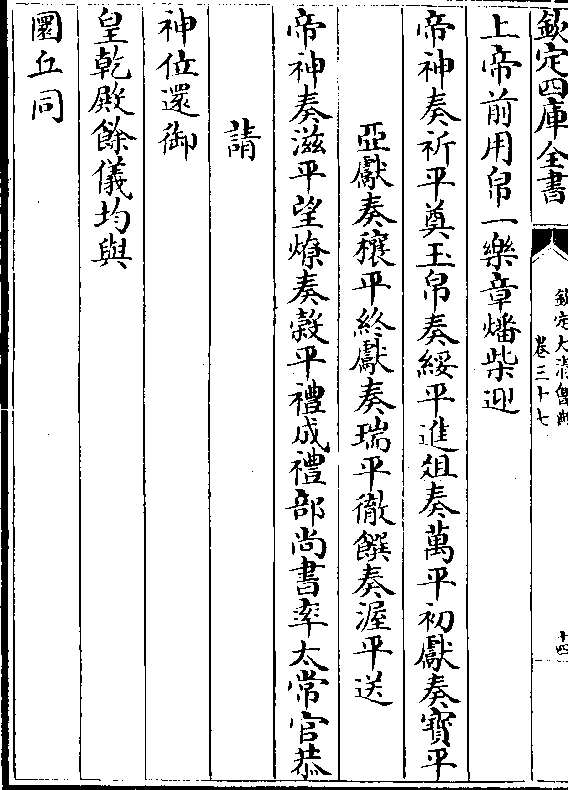 欽定四庫全書
欽定大清會典
卷三十七
十四
上帝前用帛一樂章燔柴迎
帝神奏祈平奠玉帛奏綏平進俎奏萬平初獻奏寶平
亞獻奏穰平終獻奏瑞平徹饌奏渥平送
帝神奏滋平望燎奏穀平禮成禮部尚書率太常官恭
請
神位還御
皇乾殿餘儀均與
圜丘同